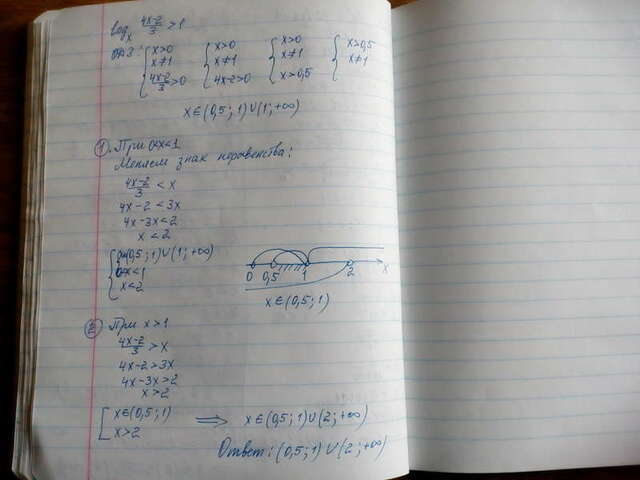 log_x (4x-2)/3 > 1
ОДЗ: { x>0 { x>0 { x>0 { x>0,5
x≠1 x≠1 x≠1 x≠1
(4x-2)/3>0 4x-2>0 x>0,5
x∈(0,5;1)∪(1;+∞)
1. При 0<x<1
Меняем знак неравенства:
(4x-2)/3 < x
4x-2 < 3x
4x-3x<2
x < 2
{ x∈(0,5;1)∪(1;+∞)
0<x<1
x<2
0 0,5 1 2 x
x∈(0,5;1)
2 При x>1
(4x-2)/3 > x
4x-2>3x
4x-3x>2
x>2
[ x∈(0,5;1) ⟹ x∈(0,5;1)∪(2;+∞)
x>2
Ответ: (0,5;1)∪(2;+∞)